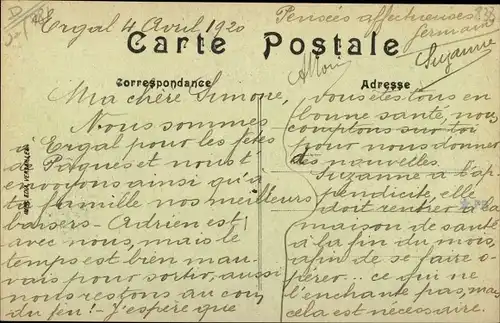 Ergal 4 Avril 1920
Pensées affectueuses
Germaine
Suzanne
Carte Postale
Correspondance
Adresse
Ma chère Simone,
Nous sommes
à Ergal pour les fêtes
de Pâques et nous t'
envoyons ainsi qu'à
ta famille nos meilleurs
baisers - Adrien est
avec nous, mais le
temps est bien mau-
vais pour sortir, aussi
nous restons au coin
du feu! - J'espère que
vous êtes tous en
bonne santé, nous
comptons sur toi
pour nous donner
des nouvelles.
Suzanne a l'ap-
pendicite, elle
doit rentrer à la
maison de santé
à la fin du mois,
afin de se faire o-
pérer... ce qui ne
l'enchante pas, mais
cela est nécessaire.